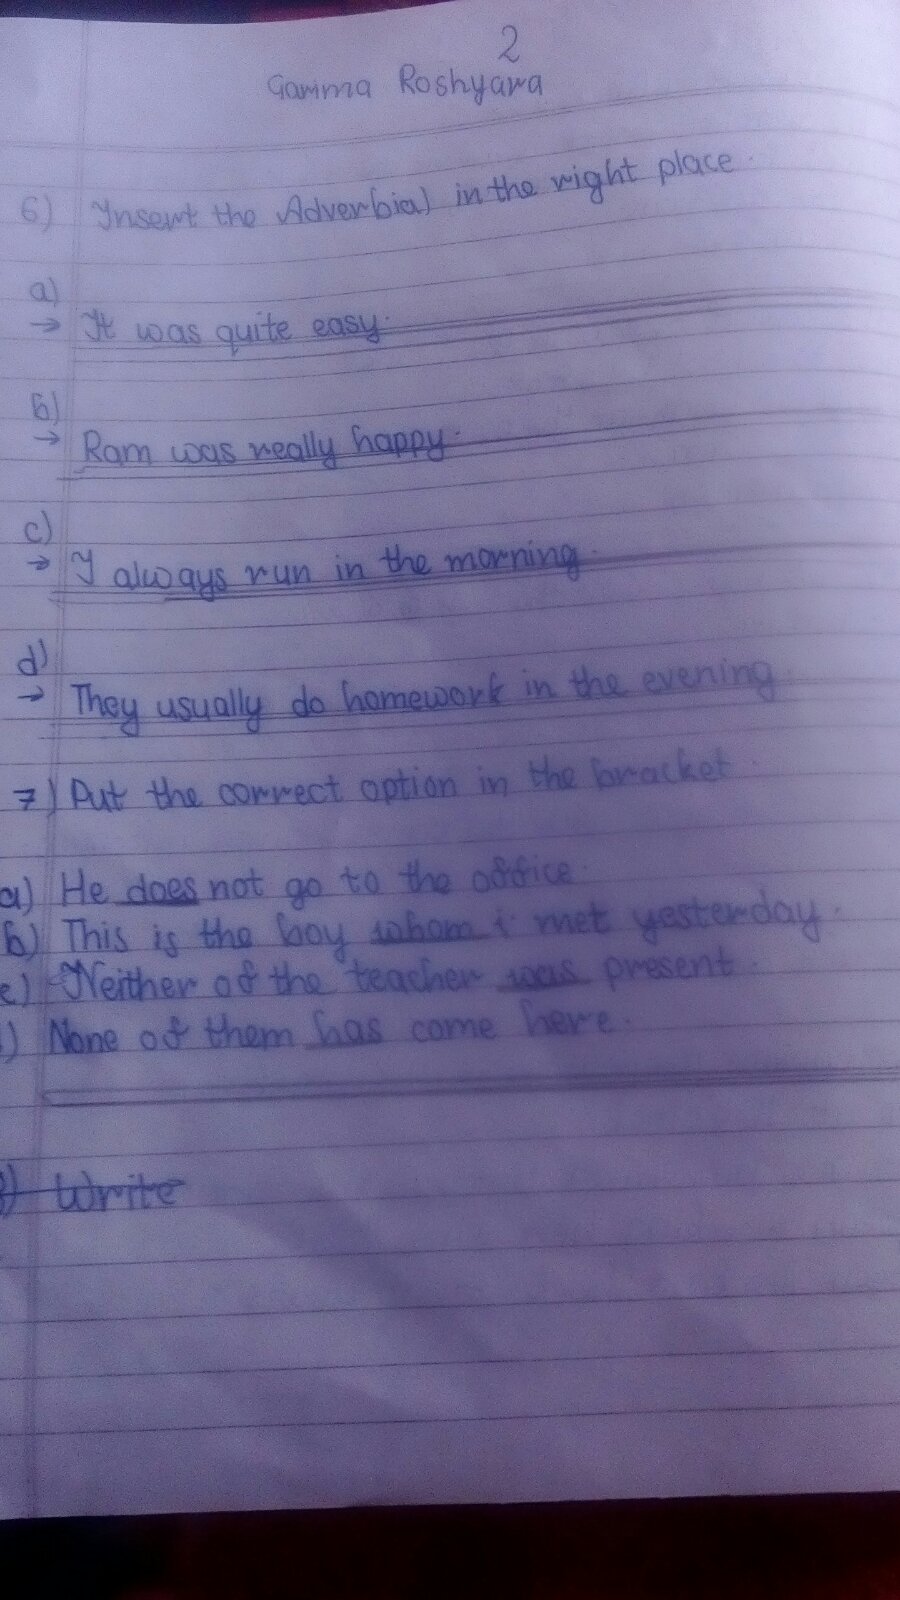 2
Garima Roshyara
6) Insert the Adverbial in the right place.
a)
→ It was quite easy.
b)
→ Ram was really happy.
c)
→ I always run in the morning.
d)
→ They usually do homework in the evening.
7) Put the correct option in the bracket.
a) He does not go to the office.
b) This is the boy whom i met yesterday.
c) Neither of the teacher was present.
) None of them has come here.
) Write